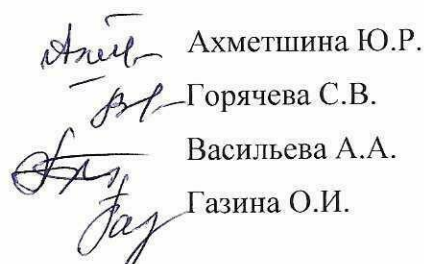 Ахметшина Ю.Р.
Горячева С.В.
Васильева А.А.
Газина О.И.